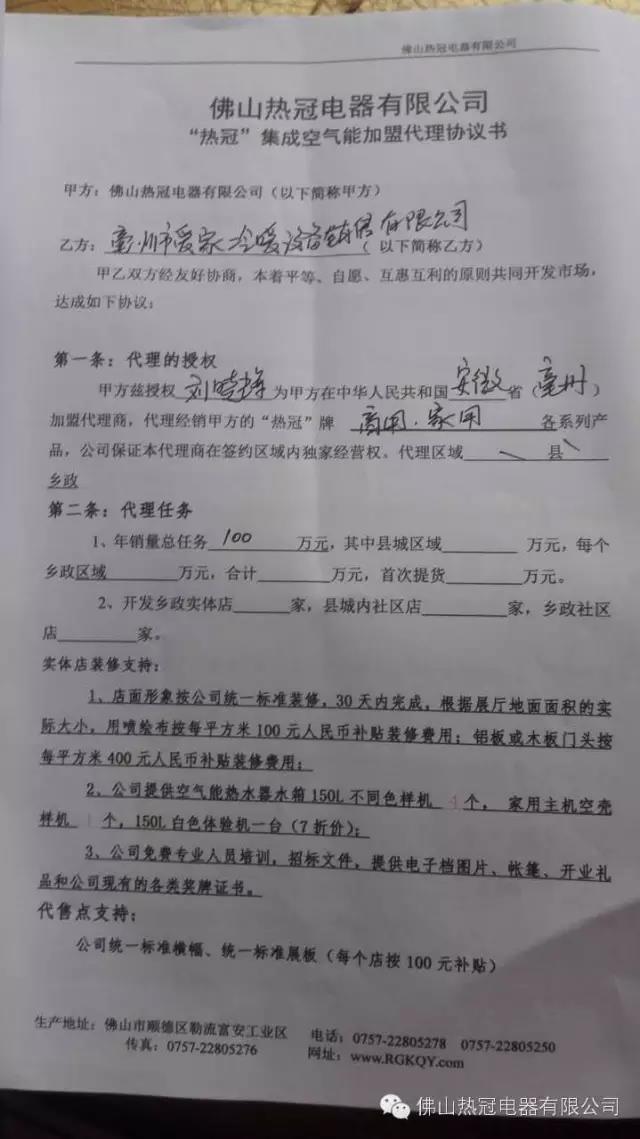 佛山热冠电器有限公司
佛山热冠电器有限公司
“热冠”集成空气能加盟代理协议书
甲方：佛山热冠电器有限公司（以下简称甲方）
乙方：亳州市爱家冷暖设备销售有限公司（以下简称乙方）
甲乙双方经友好协商，本着平等、自愿、互惠互利的原则共同开发市场，
达成如下协议：
第一条：代理的授权
甲方兹授权 刘晓 为甲方在中华人民共和国 安徽 省（亳州）
加盟代理商，代理经销甲方的“热冠”牌 商用．家用 各系列产
品，公司保证本代理商在签约区域内独家经营权。代理区域 \ 县 \
乡政
第二条：代理任务
1、年销量总任务 100 万元，其中县城区域______ 万元，每个
乡政区域______万元，合计______万元，首次提货______万元。
2、开发乡政实体店______家，县城内社区店______家，乡政社区
店______家。
实体店装修支持：
1、店面形象按公司统一标准装修，30天内完成，根据展厅地面面积的实
际大小，用喷绘布按每平方米100元人民币补贴装修费用；铝板或木板门头按
每平方米400元人民币补贴装修费用；
2、公司提供空气能热水器水箱150L不同色样机 4 个， 家用主机空壳
样机 个，150L白色体验机一台（7折价）；
3、公司免费专业人员培训，招标文件，提供电子档图片、帐篷、开业礼
品和公司现有的各类奖牌证书。
代售点支持：
公司统一标准横幅、统一标准展板（每个店按100元补贴）
生产地址：佛山市顺德区勒流富安工业区 电话：0757-22805278 0757-22805250
传真：0757-22805276 网址：www.RGKQY.com
佛山热冠电器有限公司